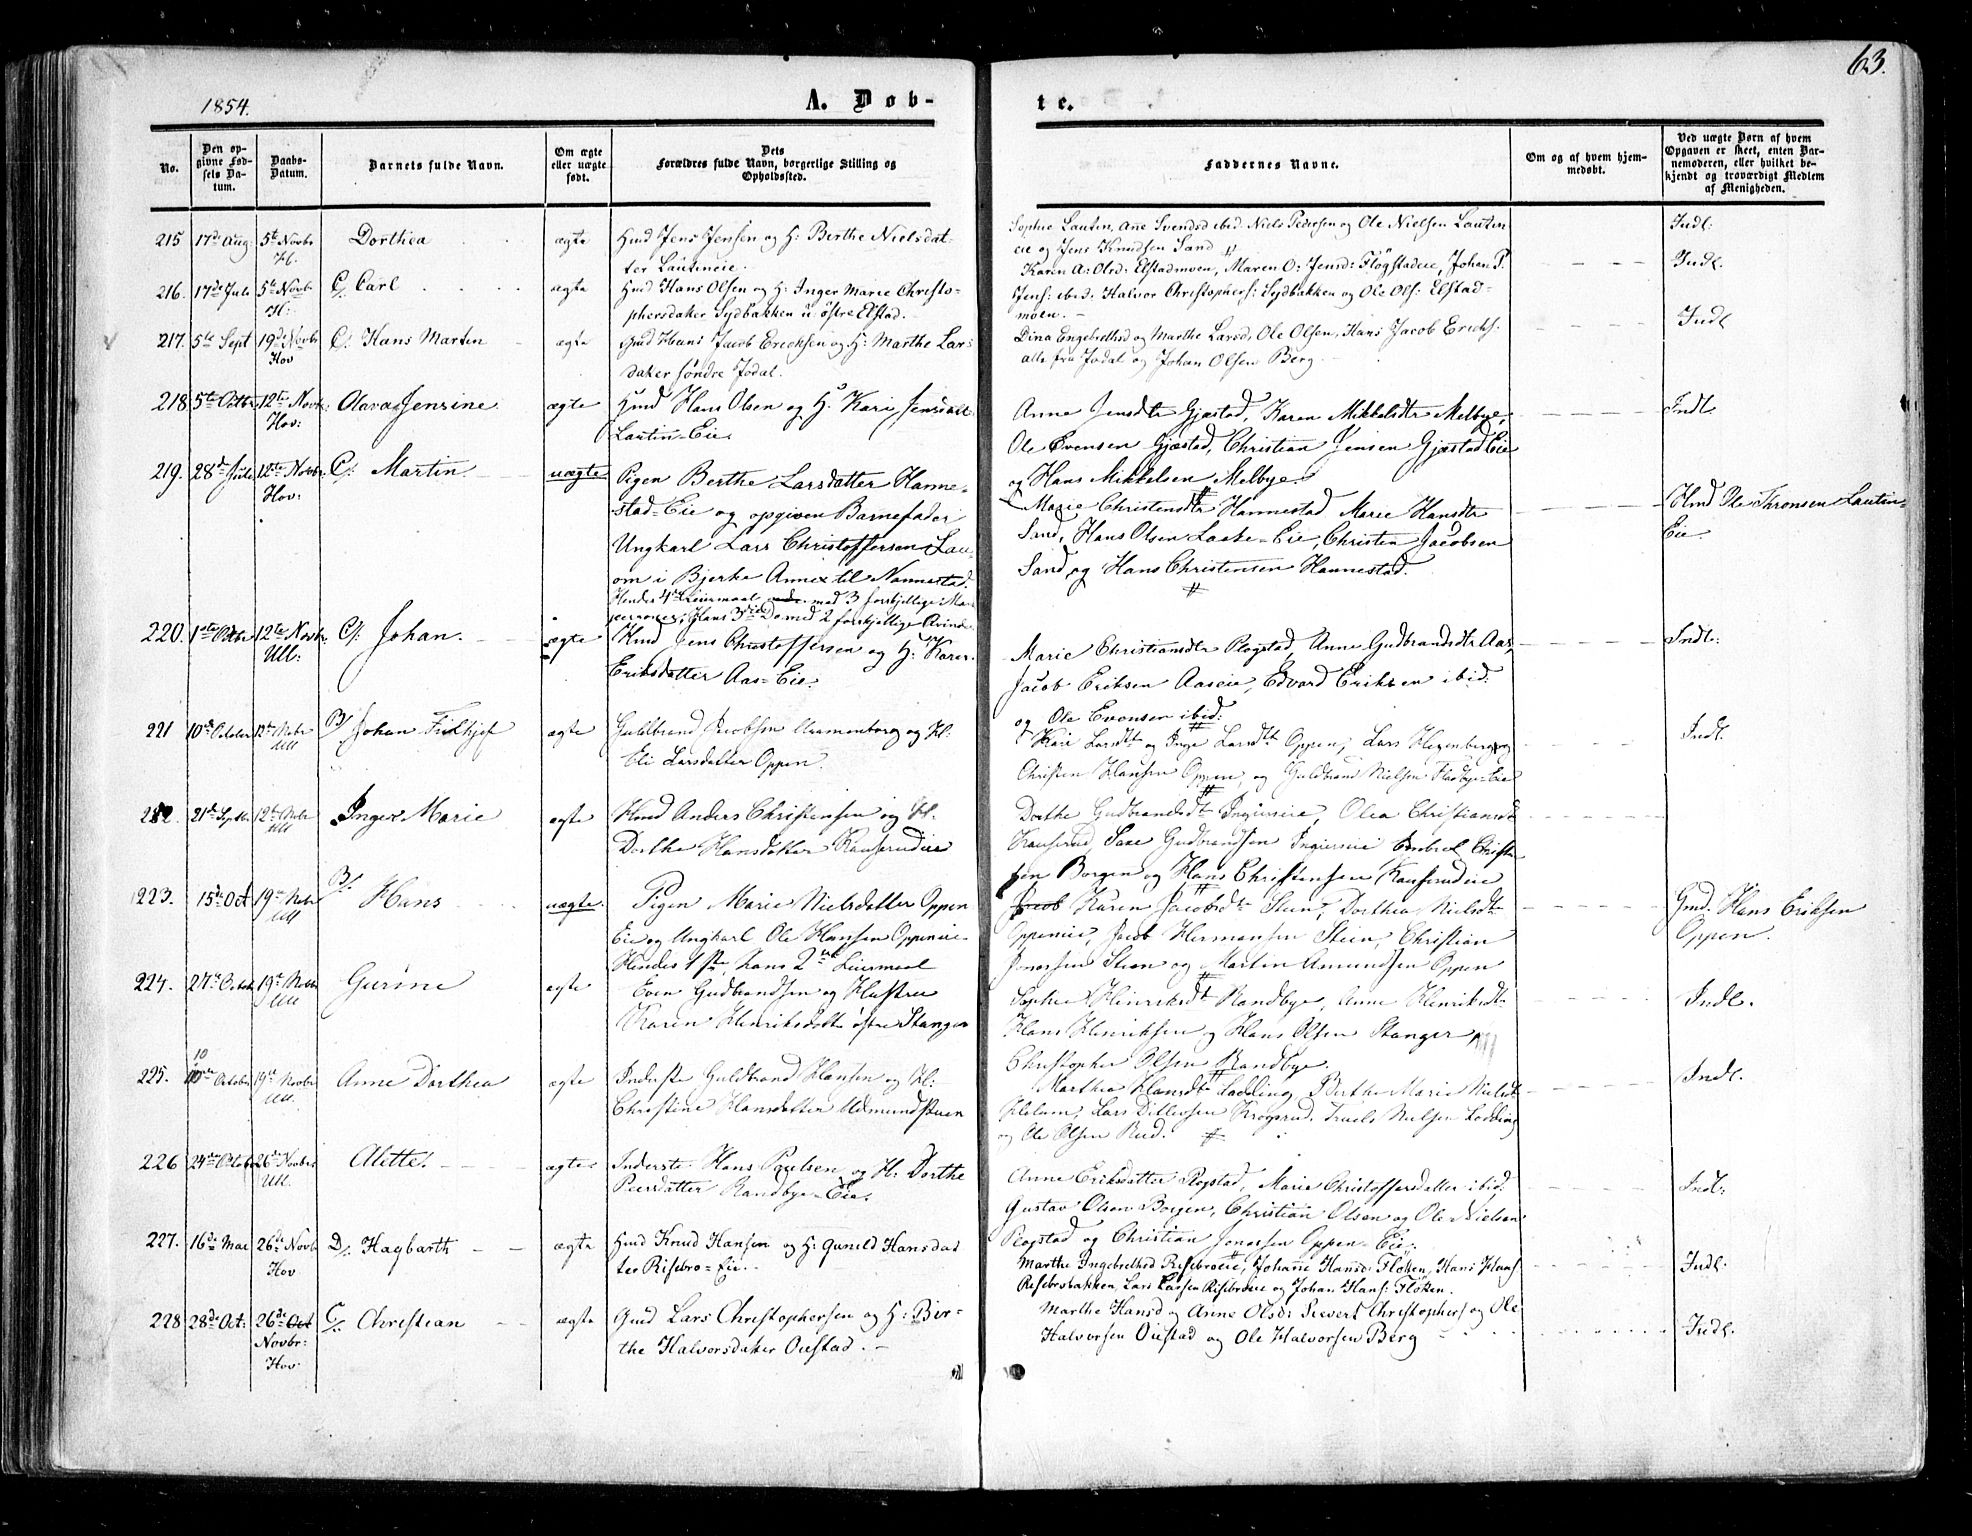 63.
1854.
A. Døb-
te.
No.
Den op-
givne Fød-
sels Da-
tum.
Daabs-
Datum.
Barnets fulde Navn.
Om ægte
eller uægte
født.
Dets
Forældres fulde Navn, borgerlige Stilling og
Opholdssted.
Faddernes Navne.
Om og af hvem hjem-
medøbt.
Ved uægte Børn af hvem
Opgaven er skeet, enten Bar-
nemoderen, eller hvilket be-
kjendt og troværdigt Medlem
af Menigheden.
215 17de Aug 5te Novbr Dorthea ægte Hmd Jens Jensen og H: Berthe Nielsdat-
H.
ter Lautineie.
Sophie Lautin, Ane Svendsd ibid Niels Pedersen og Ole Nielsen Lautin
eie og Jens Knudsen Sand
Indl:
216. 17de Juli 5te Novbr C/. Carl ægte Hmd Hans Olsen og H: Inger Marie Christo-
H:
phersdatter Sydbakken u/ østre Elstad.
Karen A: Olsd: Elstadmoen, Maren O: Jensd: Flögstadeie, Johan P.
Jens: ibid. Halvor Christophers: Sydbakken og Ole Ols: Elstad-
moen.
Indl.
217. 5te Sept 19de Novbr C/. Hans Martin ægte Gmd Hans Jacob Ericksen og H: Marthe Lars
Hov
datter søndre Jødal.
Dina Engebrethsd og Marthe Larsd, Ole Olsen, Hans Jacob Ericks.
alle fra Jødal og Johan Olsen Berg.
Indl
218 5te Octbr 12te Novbr: Olava Jensine ægte Hmd Hans Olsen og H. Kari Jensdatt
Hov:
Lautin-Eie
Anne Jensdtr Gjæstad, Karen Mikkelsdtr Melbye,
Ole Evensen Gjæstad, Christian Jensen Gjæstad Eie
og Hans Mikkelsen Melbye.
Indl.
219. 28de Juli 12te Novbr. C/. Martin uægte Pigen Berthe Larsdatter Hanne-
Hov:
stad-Eie og opgiven Barnefader
Ungkarl Lars Christoffersen Lau-
om i Bjerke Annex til Nannestad.
Hendes 4de Leiermaal med 3 forskjellige Mands
personer; Hans 3die Do med 2 forskjellige Qvinder
Marie Christensdtr Hannestad Marie Hansdtr
Sand, Hans Olsen Laake-Eie, Christen Jacobsen
Sand og Hans Christensen Hannestad.
Hmd Ole Thronsen Lautin-
Eie
220. 1ste Octbr 12te Novbr. C/. Johan. ægte Hmd Jens Christoffersen og H: Karen
Ull:
Eriksdatter Aas-Eie.
Marie Christiansdtr Rogstad, Anne Gudbrandsdtr Aas,
Jacob Eriksen Aaseie, Edvard Eriksen ibid:
og Ole Evensen ibid:
Indl:
221 10de October 12te Nobr B/ Johan Fridthjof ægte Guldbrand Jacobsen og H:
Ull
Eli Larsdatter Oppen.
Kari Larsdtt og Inge Larsdtt Oppen; Lars og
Christen Hansen Oppen, og Guldbrand Nielsen Fladbye-Eie
Indl.
222. 21de Septbr 12te Nobr Inger Marie ægte Hmd Anders Christensen og H.
Ull
Dorthe Hansdatter Kauserudeie
Dorthe Gudbrandsdt Ingierseie, Olea Christiansdt
Kauserud, Gudbrandsen Ingierseie Embret Christen
sen Borgen og Hans Christensen Kauserudeie
223. 15de Oct 19de Nobr B/. Hans uægte. Pigen Marie Nielsdatter Oppen
Ull
Eie og Ungkarl Ole Hansen Oppeneie
Hendes 1ste, hans 2det Leiermaal
Jacob Karen Jacobsdt Steen, Dorthea Nielsdt
Oppeneie, Jacob Hermansen Steen, Christian
Jonassen Steen og Martin Amundsen Oppen
Gmd. Hans Eriksen
Oppen.
224. 27de Octob 19de Nobr Gurine ægte Even Gudbrandsen og Hustru
Ull
Karen Henriksdatter østre Stanger
Sophie Henriksdt Randbye, Anne Henriksdt
Hans Henriksen og Hans Olsen Stanger
Christopher Olsen Randbye.
Indl.
225. 10de October 19de Novbr Anne Dorthea ægte Inderste Guldbrand Hansen og H:
10
Ull.
Christine Hansdatter Udmundstuen
Marthea Hansdt Ladding, Berthe Marie Nielsdt
Helum, Lars Ditlevsen Krogsrud, Truels Nielsen Ladding
og Ole Olsen Rud.
Indl.
226 24de October 26de Novbr: Alette. ægte Inderste Hans Paulsen og H: Dorthe
Ull.
Peersdatter Randbye-Eie.
Anne Eriksdatter Rogstad, Marie Christoffersdatter ibid:
Gustav Olsen Borgen, Christian Olsen og Ole Nielsen
Rogstad og Christian Jonassen Oppen-Eie.
Indl:
227. 16de Mai 26de Novbr D/. Hagbarth ægte Hmd Knud Hansen og H: Gunild Hansdat
Hov
ter Risebro-Eie.
Marthe Ingebrethsd Risebroeie, Johanne Hansd: Fløken, Hans Hans
Risebrobakken, Lars Larsen Risebroeie og Johan Hans: Fløken.
Indl:
228 28de Oct: 26de Oct C/. Christian ægte Gmd Lars Christophersen og H: Ber-
Novbr:
Hov
the Halvorsdatter Ouestad.
Marthe Hansd og Anne Olsd: Sievert Christophers og Ole
Halvorsen Ouestad og Ole Halvorsen Berg
Indl.